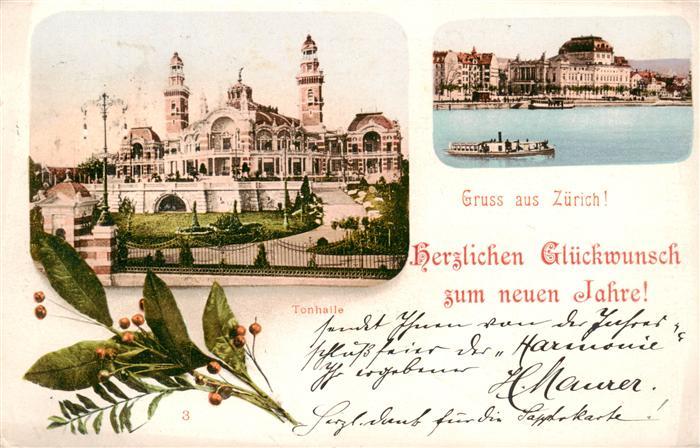 Gruss aus Zürich!
Herzlichen Glückwunsch
zum neuen Jahre!
Tonhalle
sendet Ihnen von der Jahres-
schlußfeier der "Harmonie"
Ihr ergebener H. Maurer.
Herzl. dank für die Sapptokarte!
3